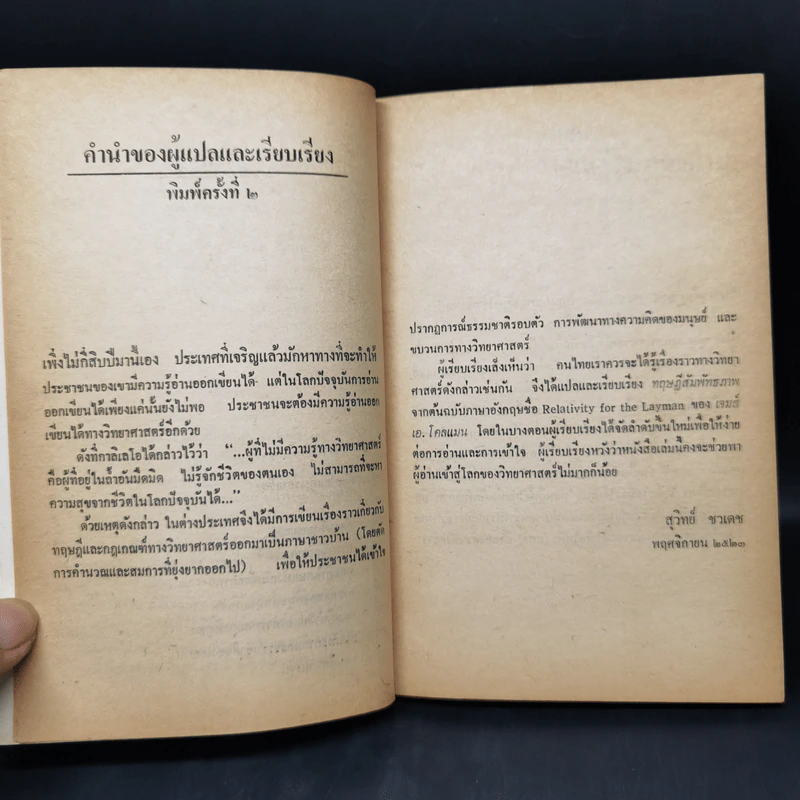 คำนำของผู้แปลและเรียบเรียง
พิมพ์ครั้งที่ ๒
เพิ่งไม่กี่สิบปีมานี้เอง ประเทศที่เจริญแล้วมักหาทางที่จะทำให้
ประชาชนของเขามีความรู้อ่านออกเขียนได้ แต่ในโลกปัจจุบันการอ่าน
ออกเขียนได้เพียงแค่นั้นยังไม่พอ ประชาชนจะต้องมีความรู้อ่านออก
เขียนได้ทางวิทยาศาสตร์อีกด้วย
ดังที่กาลิเลโอได้กล่าวไว้ว่า “...ผู้ที่ไม่มีความรู้ทางวิทยาศาสตร์
คือผู้ที่อยู่ในถ้ำอันมืดมิด ไม่รู้จักชีวิตของตนเอง ไม่สามารถที่จะหา
ความสุขจากชีวิตในโลกปัจจุบันได้...”
ด้วยเหตุดังกล่าว ในต่างประเทศจึงได้มีการเขียนเรื่องราวเกี่ยวกับ
ทฤษฎีและกฎเกณฑ์ทางวิทยาศาสตร์ออกมาเป็นภาษาชาวบ้าน (โดยตัด
การคำนวณและสมการที่ยุ่งยากออกไป) เพื่อให้ประชาชนได้เข้าใจ
ปรากฏการณ์ธรรมชาติรอบตัว การพัฒนาทางความคิดของมนุษย์ และ
ขบวนการทางวิทยาศาสตร์
ผู้เรียบเรียงเล็งเห็นว่า คนไทยเราควรจะได้รู้เรื่องราวทางวิทยา
ศาสตร์ดังกล่าวเช่นกัน จึงได้แปลและเรียบเรียง ทฤษฎีสัมพัทธภาพ
จากต้นฉบับภาษาอังกฤษชื่อ Relativity for the Layman ของ เจมส์
เอ. โคลแมน โดยในบางตอนผู้เรียบเรียงได้จัดลำดับขึ้นใหม่เพื่อให้ง่าย
ต่อการอ่านและการเข้าใจ ผู้เรียบเรียงหวังว่าหนังสือเล่มนี้คงจะช่วยพา
ผู้อ่านเข้าสู่โลกของวิทยาศาสตร์ไม่มากก็น้อย
สุวิทย์ ชวเดช
พฤศจิกายน ๒๕๒๓